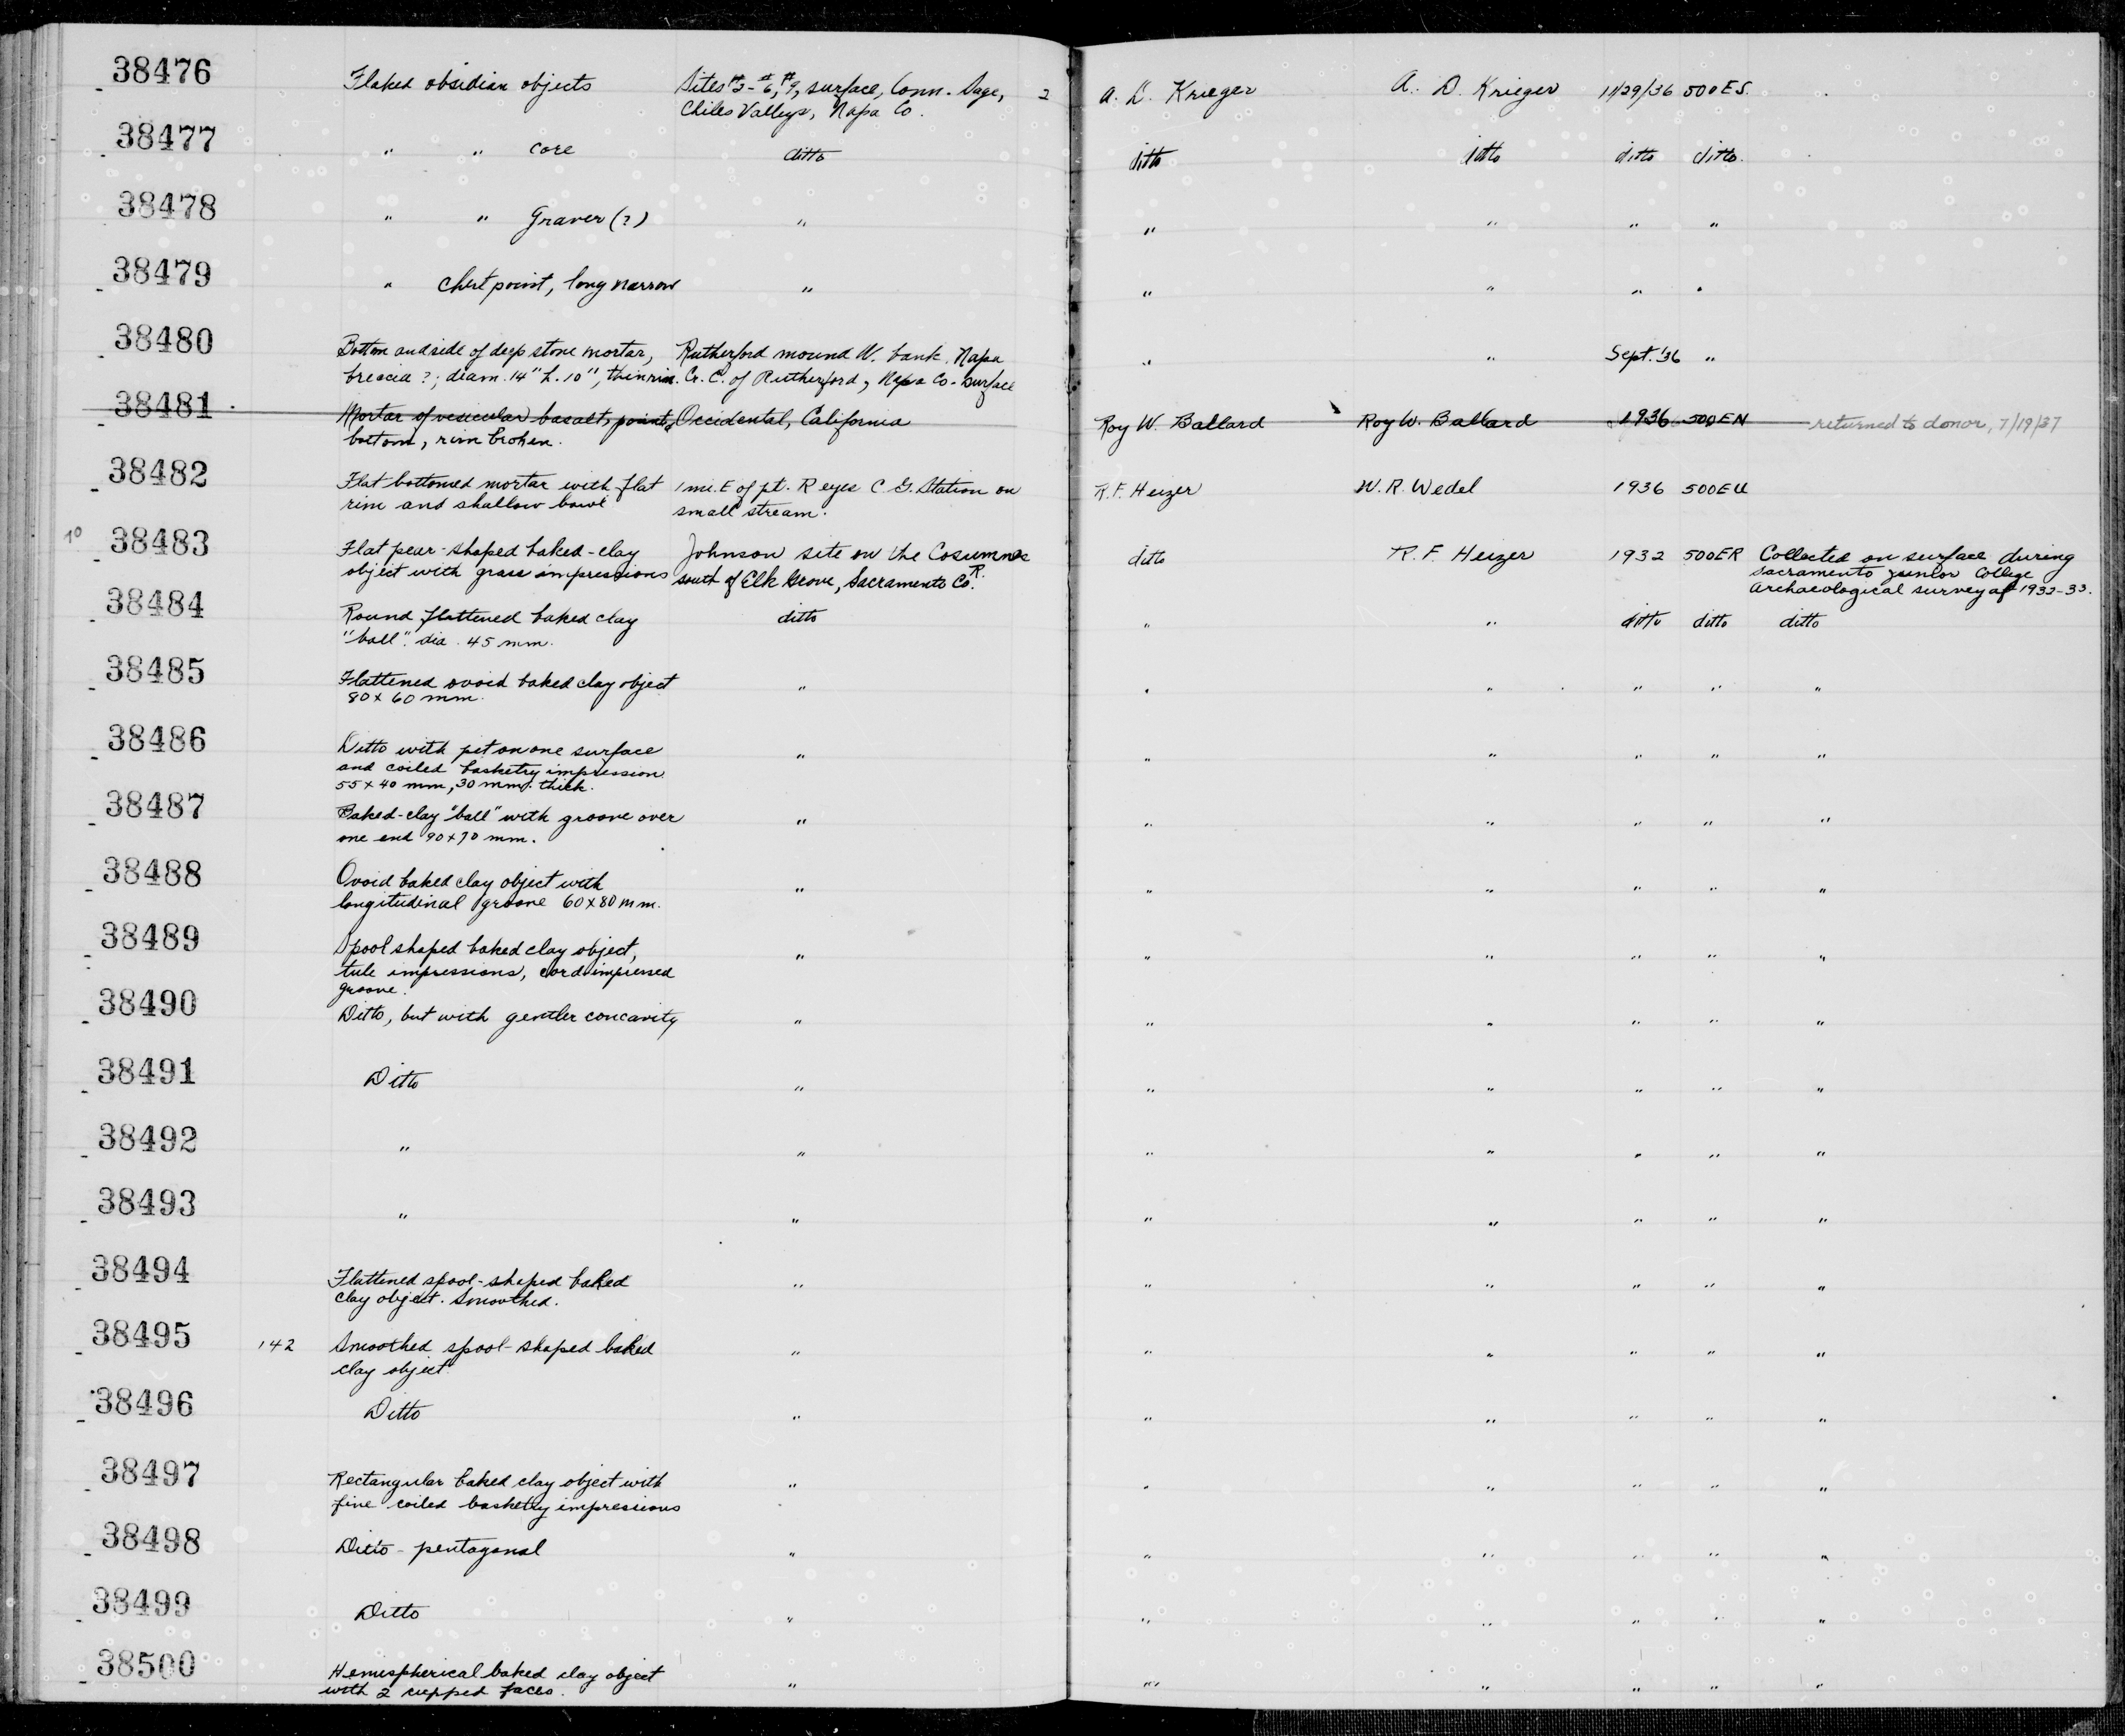 38476 Flaked obsidian objects Sites #2-#6, #9, surface, Conn. Sage, 2 A. D. Krieger A. D. Krieger 11/29/36 500ES.
Chiles Valleys, Napa Co.
38477 " " core ditto ditto ditto ditto ditto.
38478 " " Graver (?) " " " " "
38479 " Chert point, long narrow " " " " "
38480 Bottom and side of deep stone mortar, Rutherford mound W. bank Napa " " Sept. '36 "
breccia ?; diam. 14" h. 10", thin rim. Cr. E. of Rutherford, Napa Co. - Surface
38481 Mortar of vesicular basalt, pointed Occidental, California Roy W. Ballard Roy W. Ballard 1936 500EN returned to donor, 7/19/37
bottom, rim broken.
38482 Flat bottomed mortar with flat 1 mi. E of pt. Reyes C. G. Station on R. F. Heizer W. R. Wedel 1936 500EU
rim and shallow bowl small stream.
10 38483 Flat pear-shaped baked-clay Johnson site on the Cosumnes ditto R. F. Heizer 1932 500ER Collected on surface during
object with grass impressions R. south of Elk Grove, Sacramento Co. Sacramento Junior College
Archaeological survey of 1932-33.
38484 Round flattened baked clay ditto " " ditto ditto ditto
"ball". dia. 45 mm.
38485 Flattened ovoid baked clay object " " " " " "
80 x 60 mm.
38486 Ditto with pit on one surface " " " " " "
and coiled basketry impression
55 x 40 mm, 30 mm. thick.
38487 Baked-clay "ball" with groove over " " " " " "
one end 90 x 70 mm.
38488 Ovoid baked clay object with " " " " " "
longitudinal groove 60 x 80 mm.
38489 Spool shaped baked clay object, " " " " " "
tule impressions, cord-impressed
groove.
38490 Ditto, but with gentler concavity " " " " " "
38491 Ditto " " " " " "
38492 " " " " " " "
38493 " " " " " " "
38494 Flattened spool-shaped baked " " " " " "
clay object. Smoothed.
38495 142 Smoothed spool-shaped baked " " " " " "
clay object
38496 Ditto " " " " " "
38497 Rectangular baked clay object with " " " " " "
fine coiled basketry impressions
38498 Ditto - pentagonal " " " " " "
38499 Ditto " " " " " "
38500 Hemispherical baked clay object " " " " " "
with 2 cupped faces.